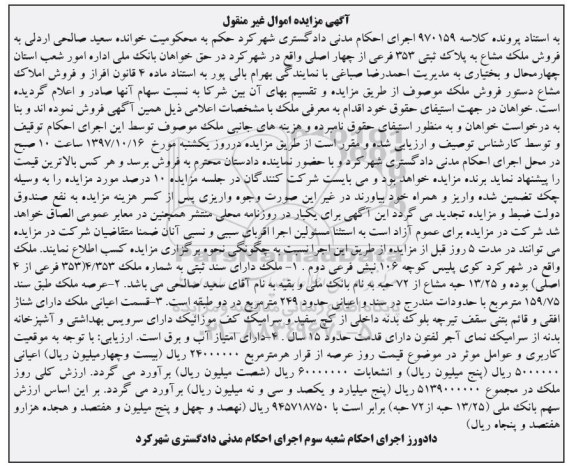 آگهی مزایده اموال غیر منقول
به استناد پرونده کلاسه ۹۷۰۱۵۹ اجرای احکام مدنی دادگستری شهرکرد حکم به محکومیت خوانده سعید صالحی اردلی به
فروش ملک مشاع به پلاک ثبتی ۳۵۳ فرعی از چهار اصلی واقع در شهرکرد در حق خواهان بانک ملی اداره امور شعب استان
چهارمحال و بختیاری به مدیریت احمدرضا صباغی با نمایندگی بهرام بالی پور به استناد ماده ۴ قانون افراز و فروش املاک
مشاع دستور فروش ملک موصوف از طریق مزایده و تقسیم بهای آن بین شرکا به نسبت سهام آنها صادر و اعلام گردیده
است. خواهان در جهت استیفای حقوق خود اقدام به معرفی ملک با مشخصات اعلامی ذیل همین آگهی فروش نموده اند و بنا
به درخواست خواهان و به منظور استیفای حقوق نامبرده و هزینه های جانبی ملک موصوف توسط این اجرای احکام توقیف
و توسط کارشناس توصیف و ارزیابی شده و مقرر است از طریق مزایده درروز یکشنبه مورخ ۱۳۹۷/۱۰/۱۶ ساعت ۱۰ صبح
در محل اجرای احکام مدنی دادگستری شهرکرد و با حضور نماینده دادستان محترم به فروش برسد و هر کس بالاترین قیمت
را پیشنهاد نماید برنده مزایده خواهد بود و می بایست شرکت کنندگان در جلسه مزایده ۱۰ درصد مورد مزایده را به وسیله
چک تضمین شده واریز و همراه خود بیاورند در غیر این صورت وجوه واریزی پس از کسر هزینه مزایده به نفع صندوق
دولت ضبط و مزایده تجدید می گردد این آگهی برای یکبار در روزنامه محلی منتشر همچنین در معابر عمومی الصاق خواهد
شد شرکت در مزایده برای عموم آزاد است به استثنا مسئولین اجرا اقربای سببی و نسبی آنان ضمنا متقاضیان شرکت در مزایده
می توانند در مدت ۵ روز قبل از مزایده از طریق این اجرا نسبت به چگونگی نحوه برگزاری مزایده کسب اطلاع نمایند. ملک
واقع در شهرکرد کوی پلیس کوچه ۱۰۶ نبش فرعی دوم . ۱- ملک دارای سند ثبتی به شماره ملک ۴/۳۵۳(۳۵۳ فرعی از ۴
اصلی) بوده و ۱۳/۲۵ حبه مشاع از ۷۲ حبه به نام بانک ملی و بقیه به نام آقای سعید صالحی می باشد. ۲-عرصه ملک طبق سند
۱۵۹/۷۵ مترمربع با حدودات مندرج در سند و اعیانی حدود ۲۴۹ مترمربع در دو طبقه است. ۳-قسمت اعیانی ملک دارای شناژ
افقی و قائم بتنی سقف تیرچه بلوک بدنه داخلی از گچ سفید و سرامیک کف موزائیک دارای سرویس بهداشتی و آشپزخانه
بدنه از سرامیک نمای آجر لفتون دارای قدمت حدود ۱۵ سال . ۴-دارای امتیاز آب و برق است. ارزیابی: با توجه به موقعیت
کاربری و عوامل موثر در موضوع قیمت روز عرصه از قرار هرمترمربع ۲۴۰۰۰۰۰۰ ریال (بیست وچهارمیلیون ریال) اعیانی
۵۰۰۰۰۰۰ ریال (پنج میلیون ریال) و انشعابات ۶۰۰۰۰۰۰۰ ریال (شصت میلیون ریال) برآورد می گردد. ارزش کلی روز
ملک در مجموع ۵۱۳۹۰۰۰۰۰۰ ریال (پنج میلیارد و یکصد و سی و نه میلیون ریال) برآورد می گردد. بر این اساس ارزش
سهم بانک ملی (۱۳/۲۵ حبه از۷۲ حبه) برابر است با ۹۴۵۷۱۸۷۵۰ ریال (نهصد و چهل و پنج میلیون و هفتصد و هجده هزارو
هفتصد و پنجاه ریال)
دادورز اجرای احکام شعبه سوم اجرای احکام مدنی دادگستری شهرکرد